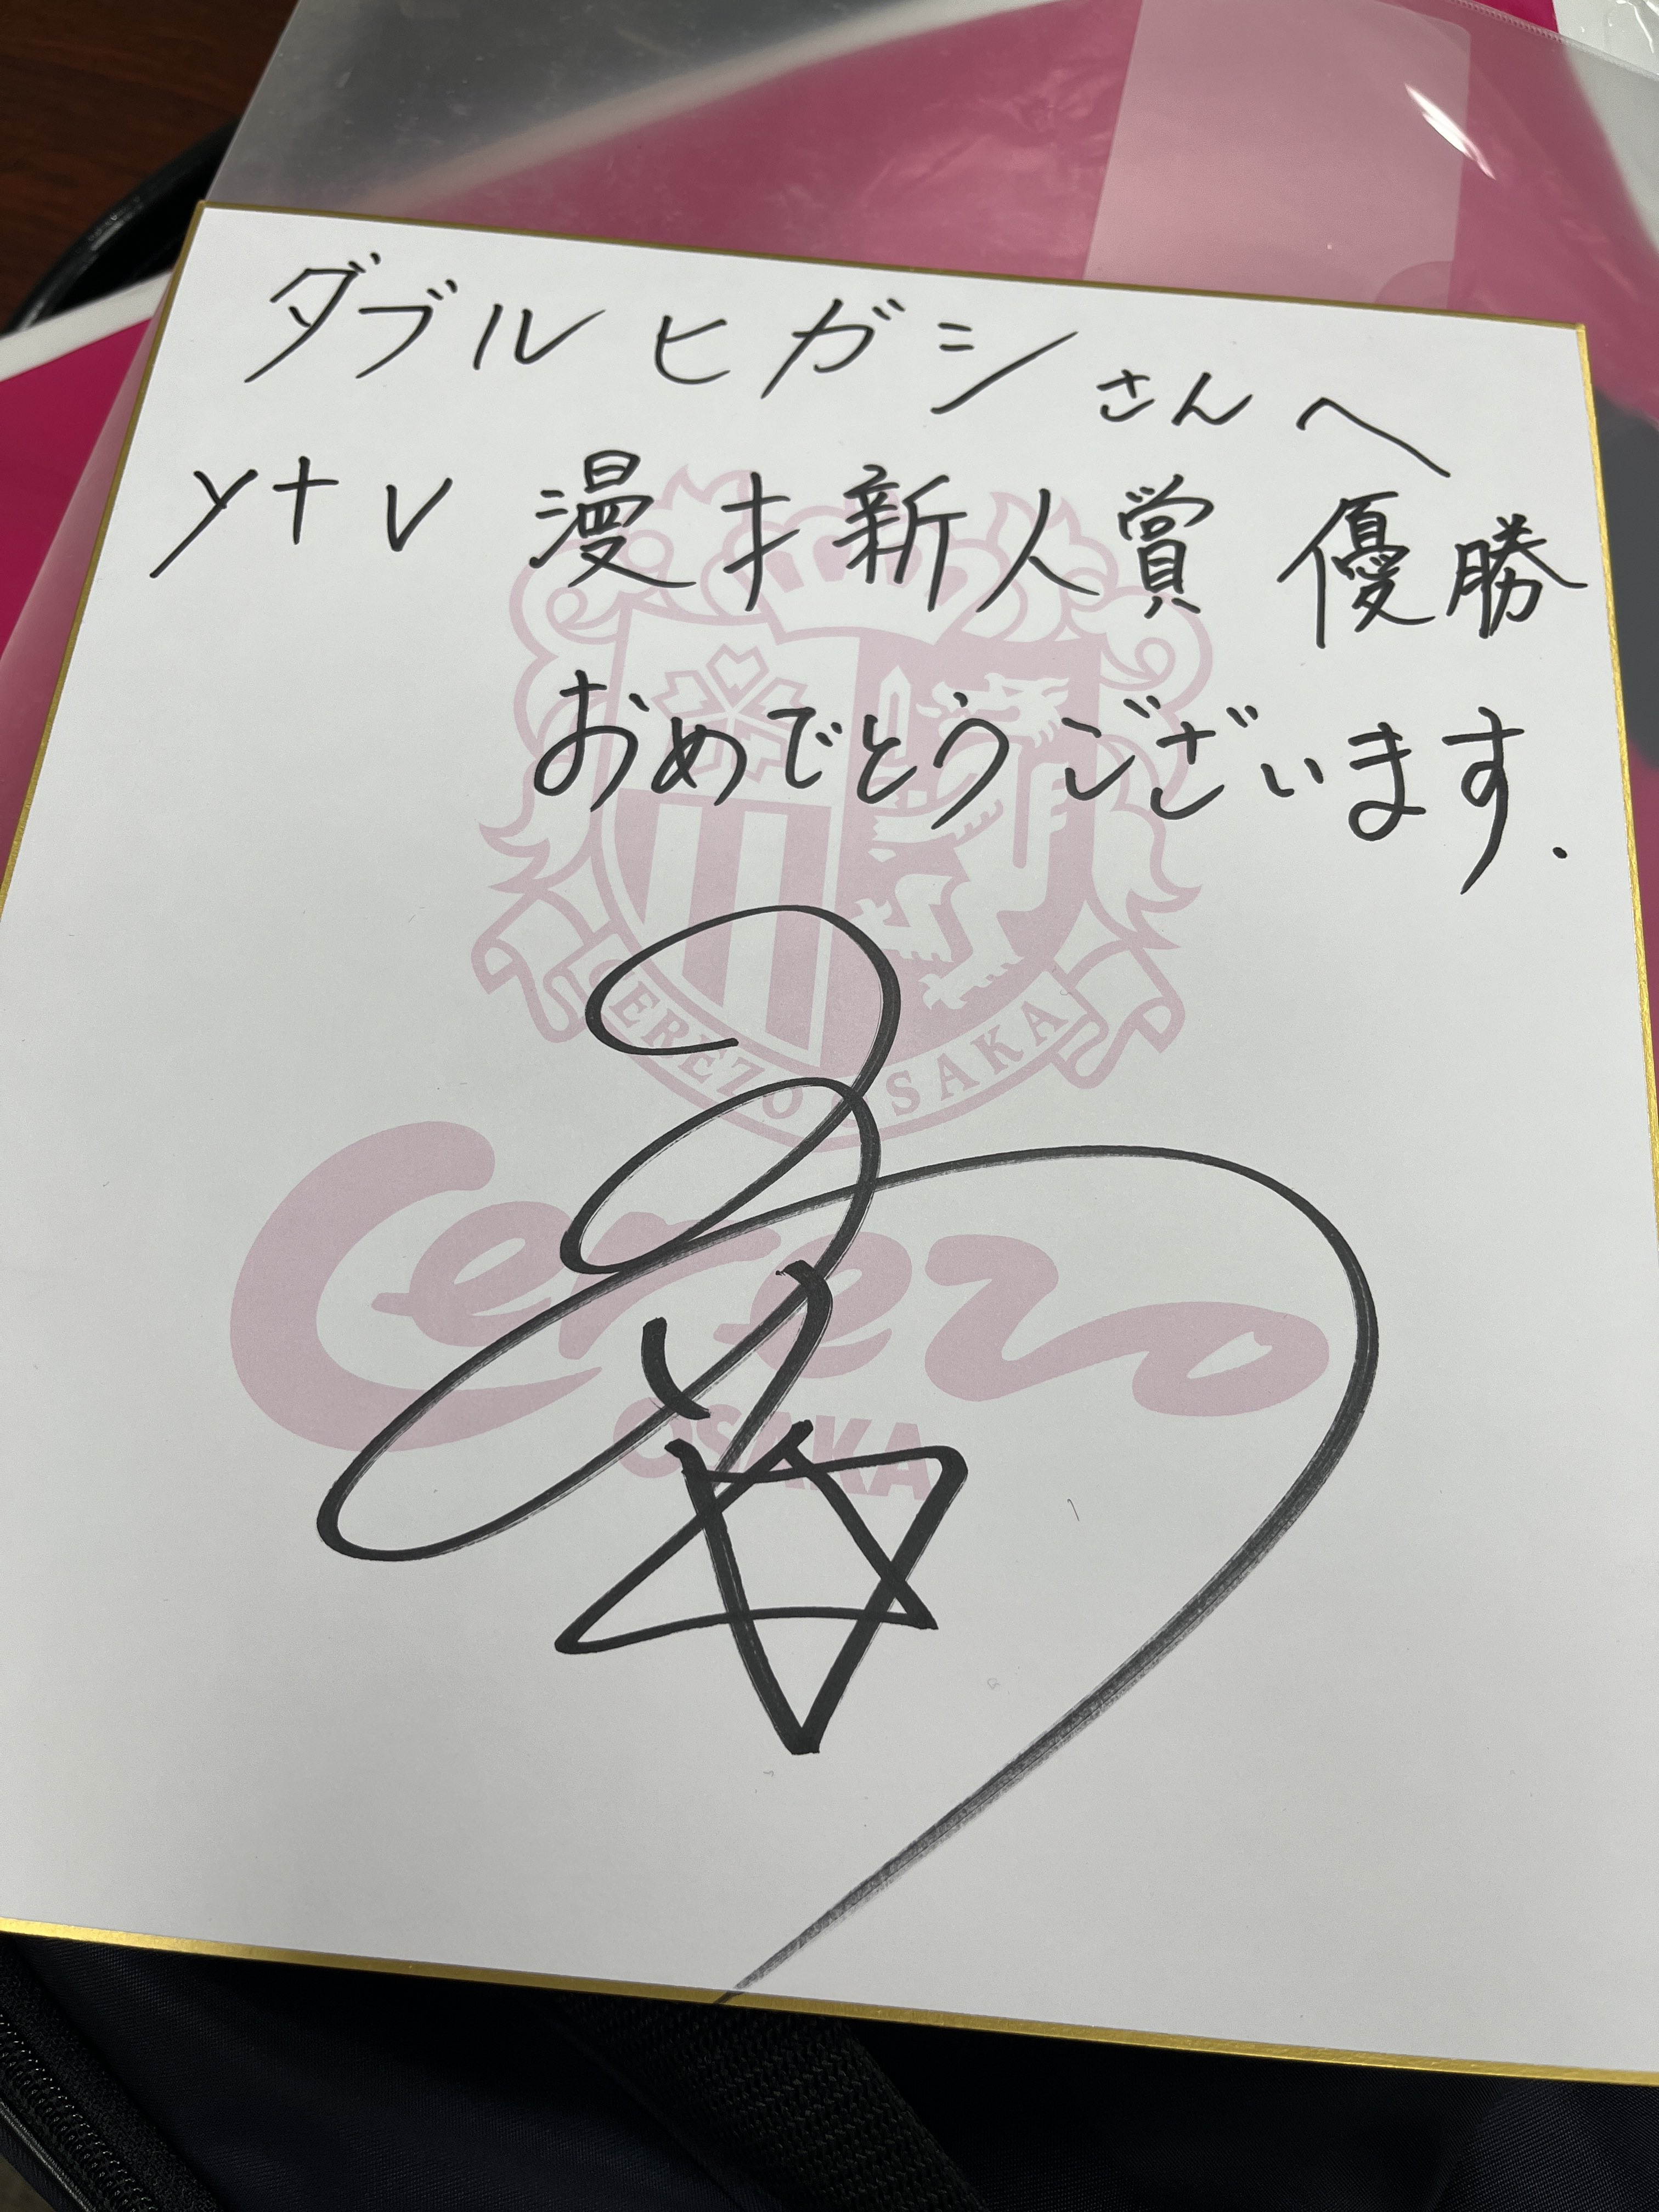 ダブルヒガシさんへ
ytv 漫才新人賞 優勝
おめでとうございます.
CEREZO OSAKA
Cerezo
OSAKA